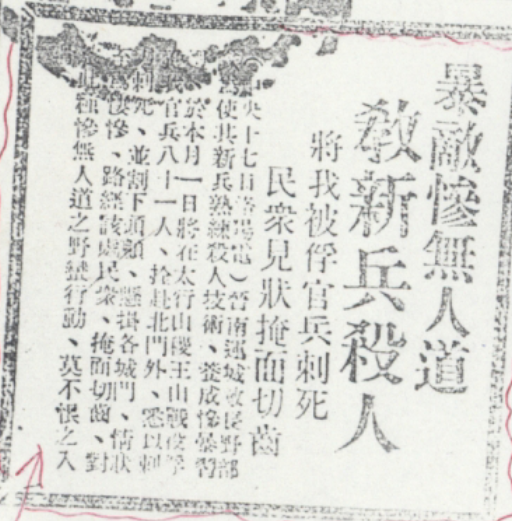 暴敵慘無人道
教新兵殺人
將我被俘官兵刺死
民衆見狀掩面切齒
央十七日電）晉南運城敵長野部
使其新兵熟練殺人技術、養成慘暴習
於本月一日將在太行山稷王山戰役
官兵八十一人、拴赴北門外、悉以刺
刺死、並割下頭顱、懸掛各城門、情狀
慘、路經該處民衆、掩面切齒、對
種慘無人道之野蠻行動、莫不恨之入